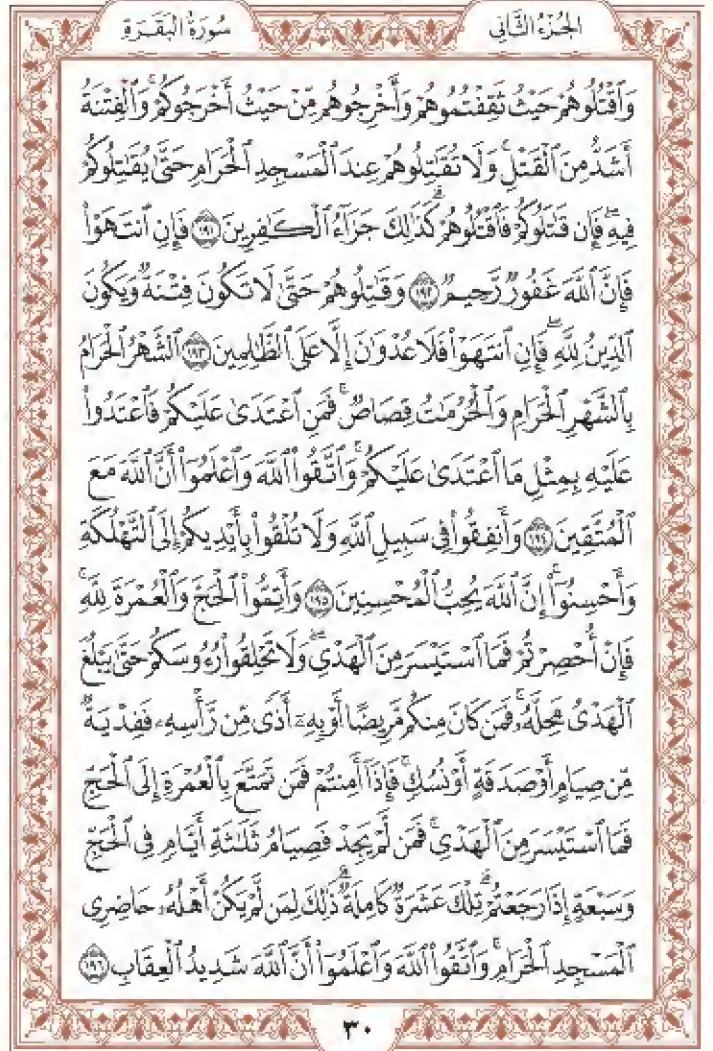 سُورَةُ الْبَقَرَةِ
الجُزْءُ الثَّانِي
وَٱقْتُلُوهُمْ حَيْثُ ثَقِفْتُمُوهُمْ وَأَخْرِجُوهُم مِّنْ حَيْثُ أَخْرَجُوكُمْ ۚ وَٱلْفِتْنَةُ
أَشَدُّ مِنَ ٱلْقَتْلِ ۚ وَلَا تُقَٰتِلُوهُمْ عِندَ ٱلْمَسْجِدِ ٱلْحَرَامِ حَتَّىٰ يُقَٰتِلُوكُمْ
فِيهِ ۖ فَإِن قَٰتَلُوكُمْ فَٱقْتُلُوهُمْ ۗ كَذَٰلِكَ جَزَآءُ ٱلْكَٰفِرِينَ ١٩١ فَإِنِ ٱنتَهَوْا۟
فَإِنَّ ٱللَّهَ غَفُورٌ رَّحِيمٌ ١٩٢ وَقَٰتِلُوهُمْ حَتَّىٰ لَا تَكُونَ فِتْنَةٌ وَيَكُونَ
ٱلدِّينُ لِلَّهِ ۖ فَإِنِ ٱنتَهَوْا۟ فَلَا عُدْوَٰنَ إِلَّا عَلَى ٱلظَّٰلِمِينَ ١٩٣ ٱلشَّهْرُ ٱلْحَرَامُ
بِٱلشَّهْرِ ٱلْحَرَامِ وَٱلْحُرُمَٰتُ قِصَاصٌ ۚ فَمَنِ ٱعْتَدَىٰ عَلَيْكُمْ فَٱعْتَدُوا۟
عَلَيْهِ بِمِثْلِ مَا ٱعْتَدَىٰ عَلَيْكُمْ ۚ وَٱتَّقُوا۟ ٱللَّهَ وَٱعْلَمُوٓا۟ أَنَّ ٱللَّهَ مَعَ
ٱلْمُتَّقِينَ ١٩٤ وَأَنفِقُوا۟ فِى سَبِيلِ ٱللَّهِ وَلَا تُلْقُوا۟ بِأَيْدِيكُمْ إِلَى ٱلتَّهْلُكَةِ ۛ
وَأَحْسِنُوٓا۟ ۛ إِنَّ ٱللَّهَ يُحِبُّ ٱلْمُحْسِنِينَ ١٩٥ وَأَتِمُّوا۟ ٱلْحَجَّ وَٱلْعُمْرَةَ لِلَّهِ ۚ
فَإِنْ أُحْصِرْتُمْ فَمَا ٱسْتَيْسَرَ مِنَ ٱلْهَدْىِ ۖ وَلَا تَحْلِقُوا۟ رُءُوسَكُمْ حَتَّىٰ يَبْلُغَ
ٱلْهَدْىُ مَحِلَّهُۥ ۚ فَمَن كَانَ مِنكُم مَّرِيضًا أَوْ بِهِۦٓ أَذًى مِّن رَّأْسِهِۦ فَفِدْيَةٌ
مِّن صِيَامٍ أَوْ صَدَقَةٍ أَوْ نُسُكٍ ۚ فَإِذَآ أَمِنتُمْ فَمَن تَمَتَّعَ بِٱلْعُمْرَةِ إِلَى ٱلْحَجِّ
فَمَا ٱسْتَيْسَرَ مِنَ ٱلْهَدْىِ ۚ فَمَن لَّمْ يَجِدْ فَصِيَامُ ثَلَٰثَةِ أَيَّامٍ فِى ٱلْحَجِّ
وَسَبْعَةٍ إِذَا رَجَعْتُمْ ۗ تِلْكَ عَشَرَةٌ كَامِلَةٌ ۗ ذَٰلِكَ لِمَن لَّمْ يَكُنْ أَهْلُهُۥ حَاضِرِى
ٱلْمَسْجِدِ ٱلْحَرَامِ ۚ وَٱتَّقُوا۟ ٱللَّهَ وَٱعْلَمُوٓا۟ أَنَّ ٱللَّهَ شَدِيدُ ٱلْعِقَابِ ١٩٦
٣٠